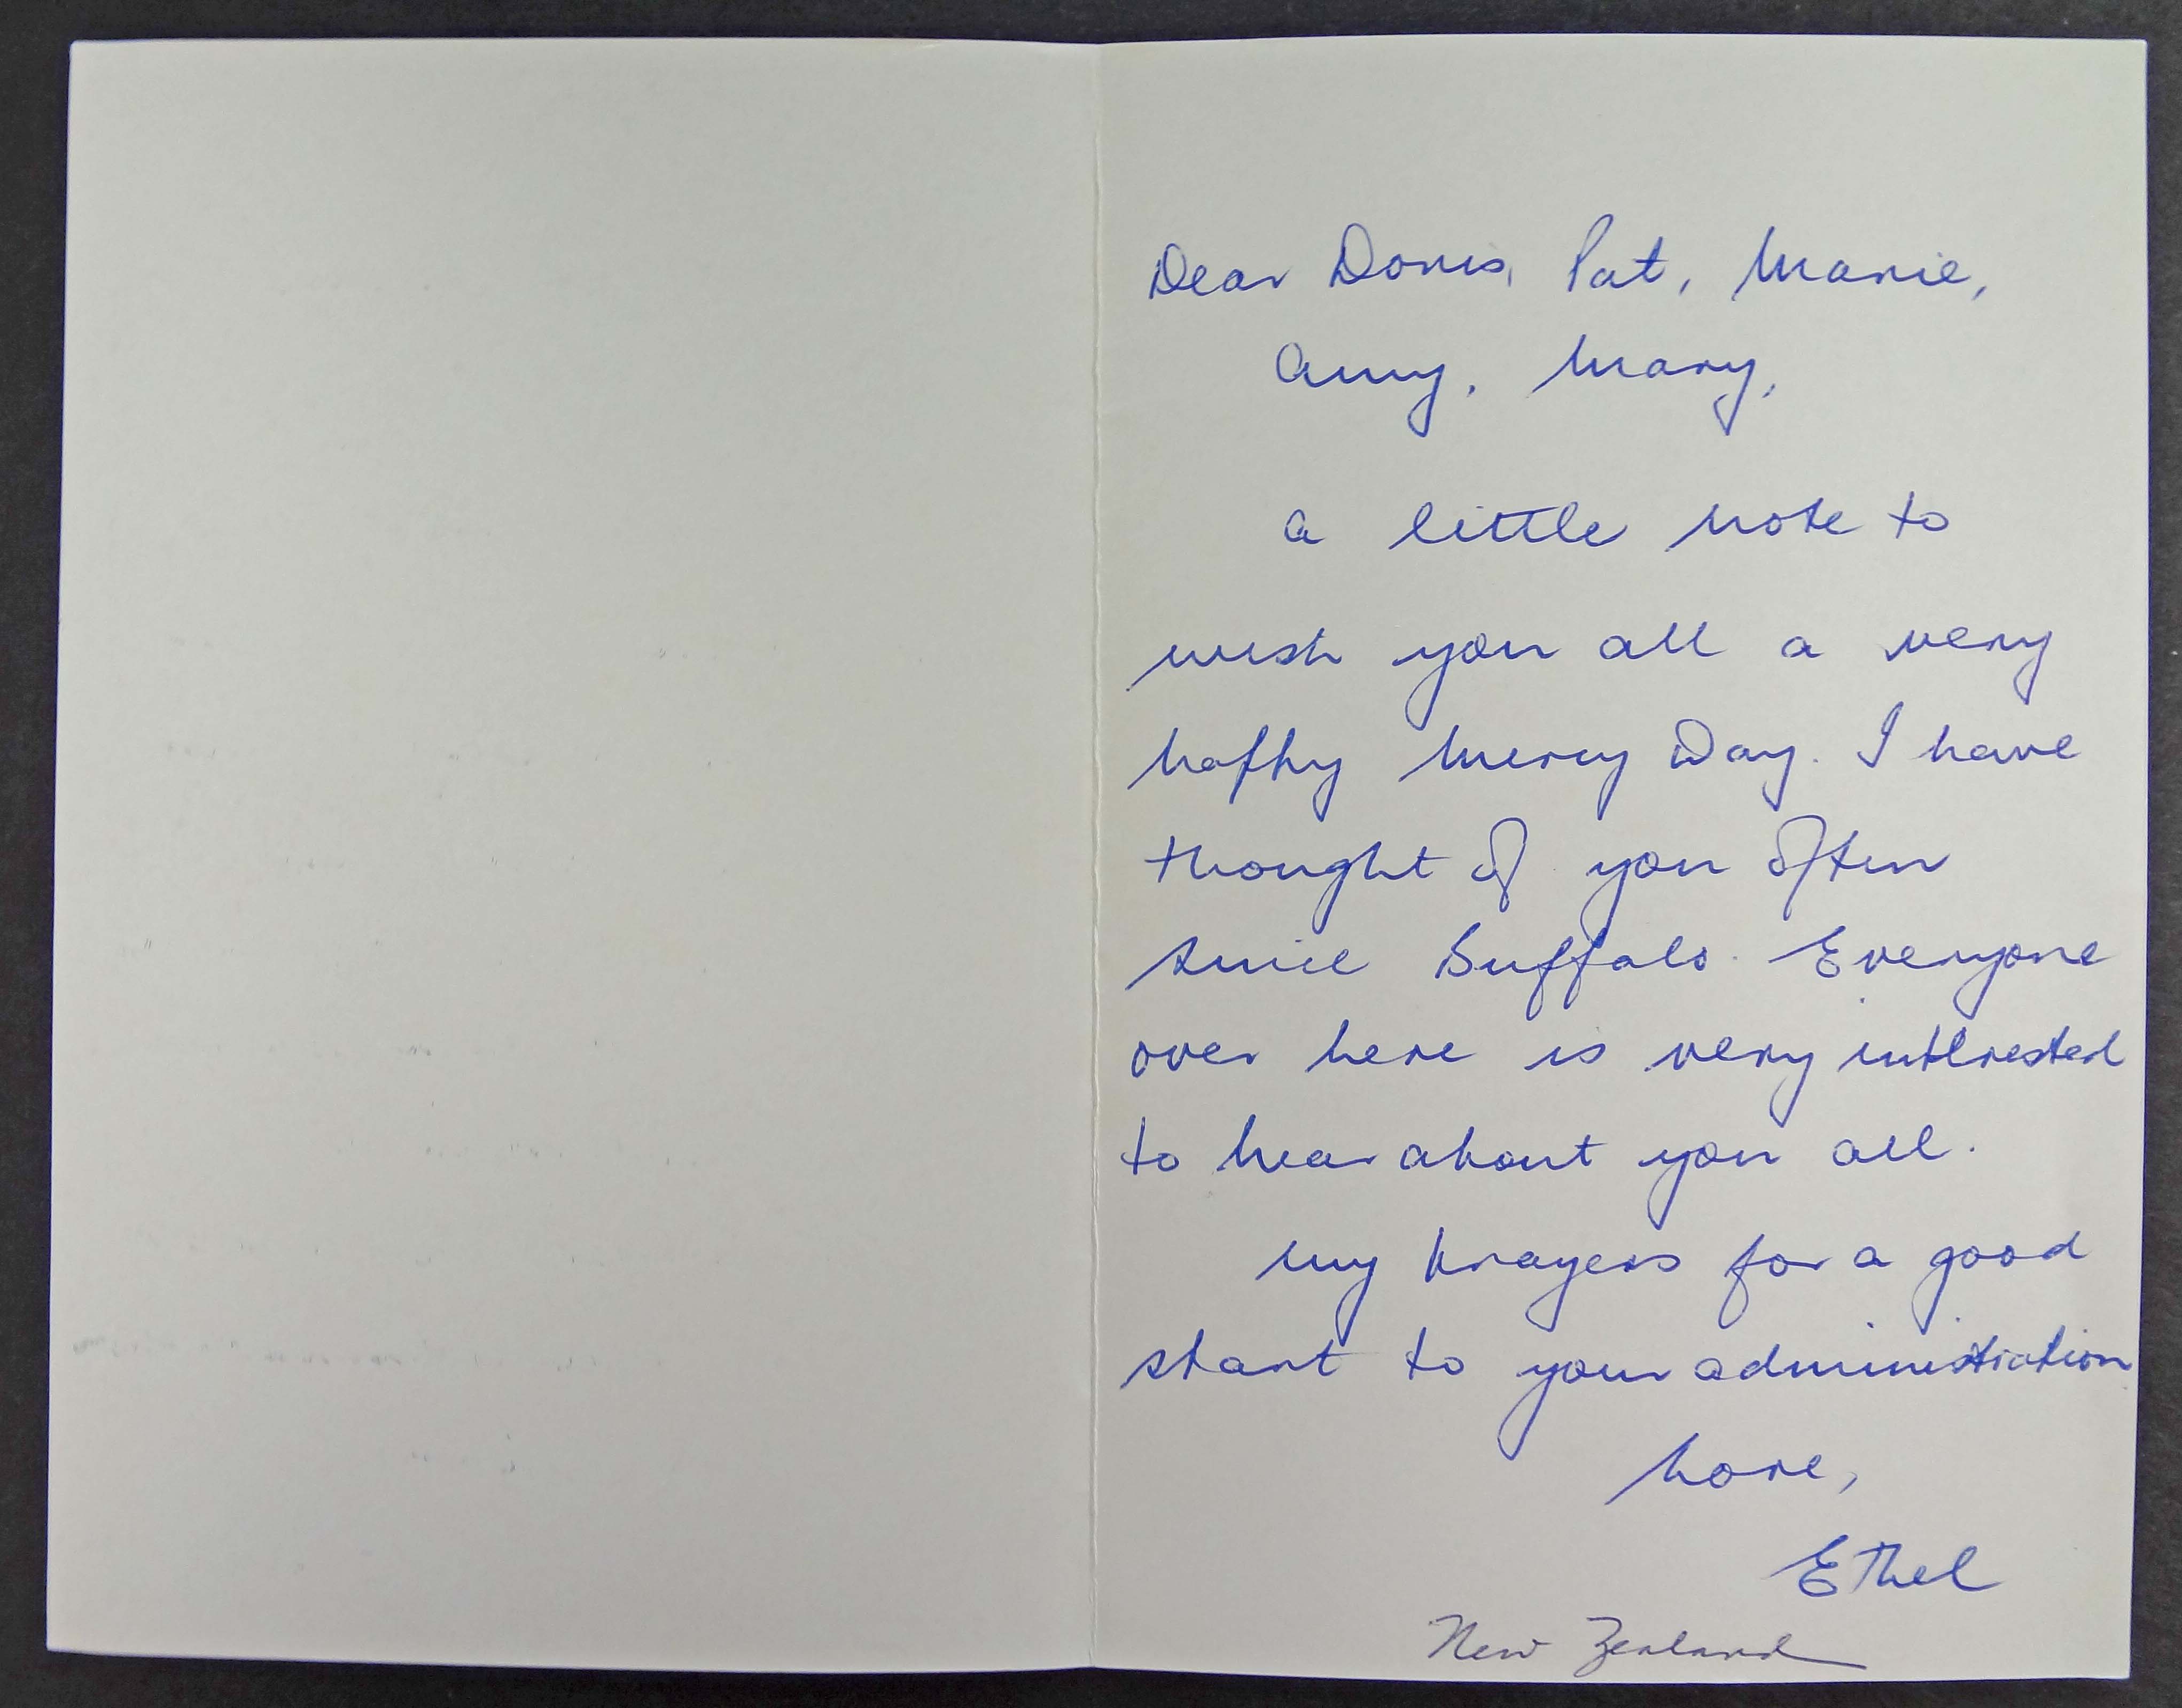 Dear Doris, Pat, Marie,
Amy, Mary,
a little note to
wish you all a very
happy Mercy Day. I have
thought of you often
since Buffalo. Everyone
over here is very interested
to hear about you all.
My prayers for a good
start to your administration
Love,
Ethel
New Zealand